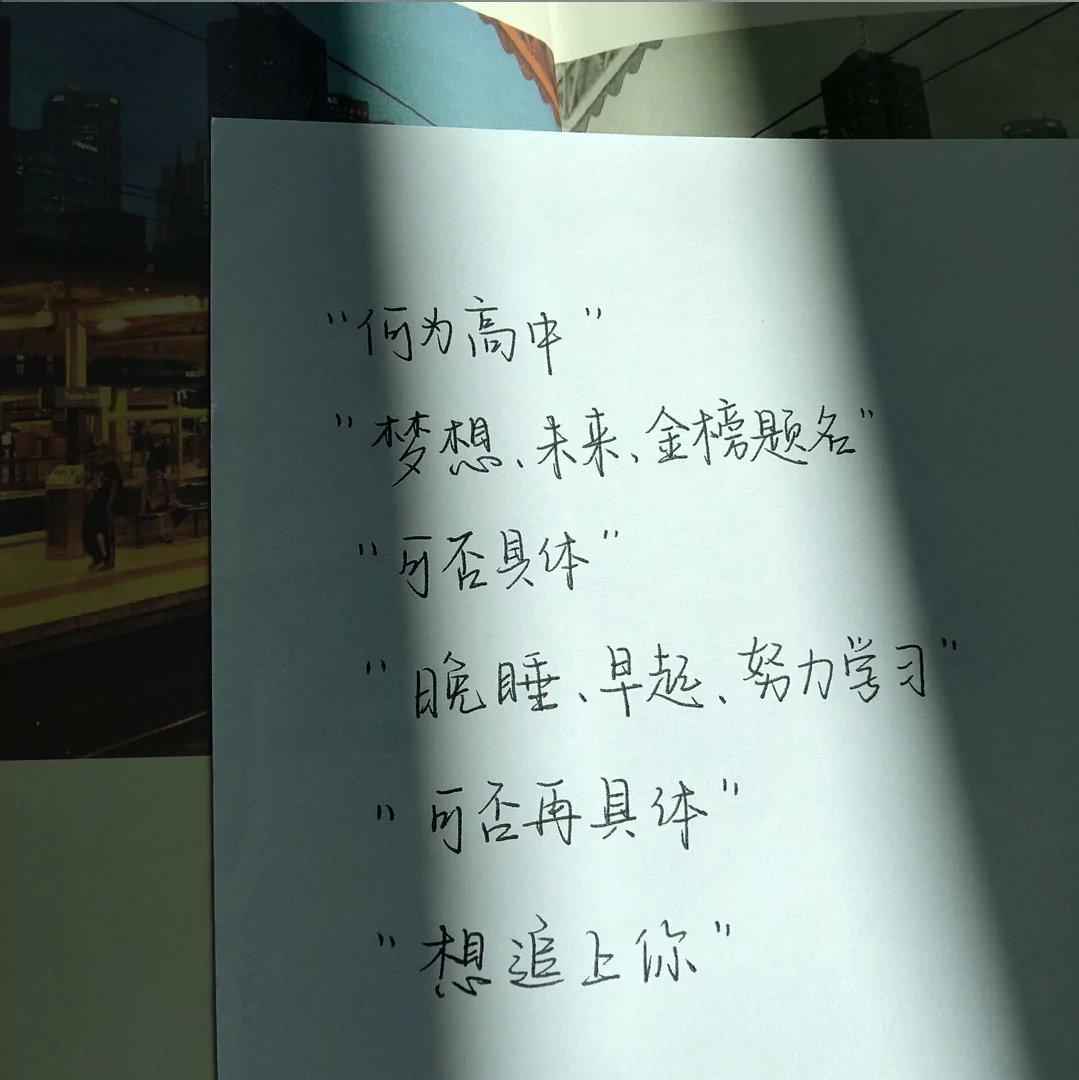 "何为高中"
"梦想、未来、金榜题名"
"可否具体"
"晚睡、早起、努力学习"
"可否再具体"
"想追上你"